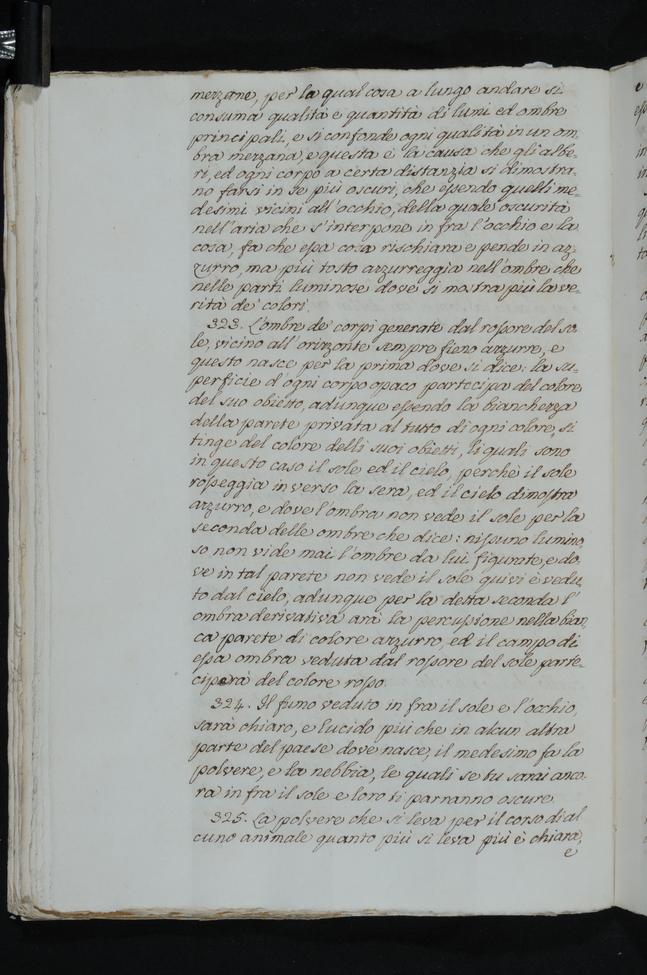 mezzane, per la qual cosa a lungo andare si
consuma qualità e quantità di lumi ed ombre
principali, e si confonde ogni qualità in un om¬
bra mezzana, e questa è la causa che gli albe¬
ri, ed ogni corpo a certa distanzia si dimostra¬
no farsi in se più oscuri, che essendo quelli me¬
desimi vicini all'occhio, della quale oscurità
nell'aria che s'interpone in fra l'occhio e la
cosa, fa che essa cosa rischiara e pende in az¬
zurro, ma più tosto azzurreggia nell'ombre che
nelle parti luminose dove si mostra più la ve¬
rità de' colori.
323. L'ombre de' corpi generate dal rossore del so¬
le, vicino all'orizzonte sempre fieno azzurre, e
questo nasce per la prima dove si dice: la su¬
perficie d'ogni corpo opaco partecipa del colore
del suo obietto, adunque essendo la bianchezza
della parete privata al tutto di ogni colore, si
tinge del colore delli suoi obietti, li quali sono
in questo caso il sole ed il cielo, perchè il sole
rosseggia inverso la sera, ed il cielo dimostra
azzurro, e dove l'ombra non vede il sole per la
seconda delle ombre che dice: nissuno lumino¬
so non vide mai l'ombre da lui figurate, e do¬
ve in tal parete non vede il sole quivi è vedu¬
to dal cielo, adunque per la detta seconda l'
ombra derivativa arà la percussione nella bian¬
ca parete di colore azzurro, ed il campo di
essa ombra veduta dal rossore del sole parte¬
ciperà del colore rosso.
324. Il fumo veduto in fra il sole e l'occhio,
sarà chiaro, e lucido più che in alcun altra
parte del paese dove nasce, il medesimo fa la
polvere, e la nebbia, le quali se tu sarai anco¬
ra in fra il sole e loro ti parranno oscure.
325. La polvere che si leva per il corso di al
cuno animale quanto più si leva più è chiara,
e